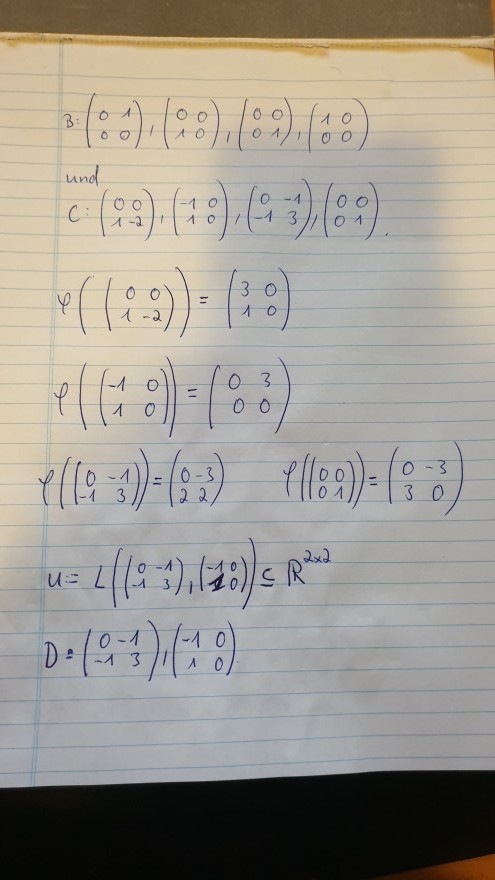 B: (0 1 / 0 0), (0 0 / 1 0), (0 0 / 0 1), (1 0 / 0 0)
und
C: (0 0 / 1 -2), (-1 0 / 1 0), (0 -1 / -1 3), (0 0 / 0 1).
φ((0 0 / 1 -2)) = (3 0 / 1 0)
φ((-1 0 / 1 0)) = (0 3 / 0 0)
φ((0 -1 / -1 3)) = (0 -3 / 2 2) φ((0 0 / 0 1)) = (0 -3 / 3 0)
U = L((0 -1 / -1 3), (-1 0 / 1 0)) ⊆ ℝ^2×2
D = (0 -1 / -1 3), (-1 0 / 1 0).